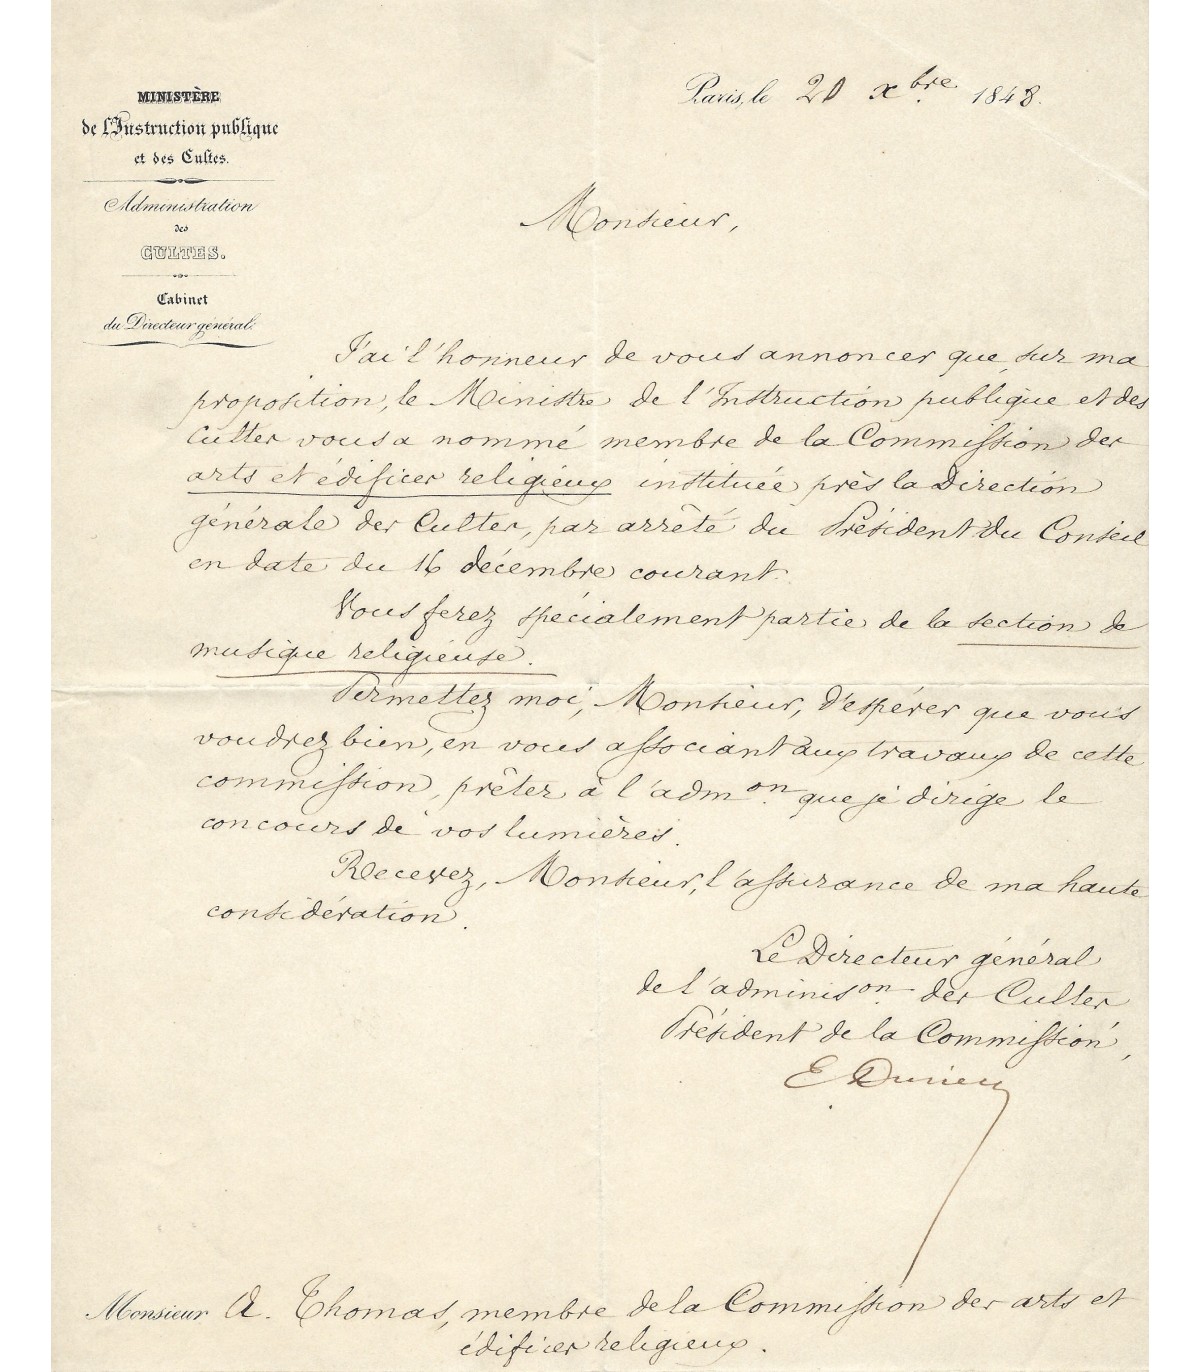 MINISTÈRE
de l'Instruction publique
et des Cultes.
Administration
des
CULTES.
Cabinet
du Directeur général.
Paris, le 20 xbre 1848.
Monsieur,
J'ai l'honneur de vous annoncer que, sur ma
proposition, le Ministre de l'Instruction publique et des
Cultes vous a nommé membre de la Commission des
arts et édifices religieux instituée près la Direction
générale des Cultes, par arrêté du Président du Conseil
en date du 16 décembre courant.
Vous ferez spécialement partie de la section de
musique religieuse.
Permettez moi, Monsieur, d'espérer que vous
voudrez bien, en vous associant aux travaux de cette
commission, prêter à l'admon. que je dirige le
concours de vos lumières.
Recevez, Monsieur, l'assurance de ma haute
considération.
Le Directeur général
de l'adminison. des Cultes
Président de la Commission,
E Durieu
Monsieur A. Thomas, membre de la Commission des arts et
édifices religieux.